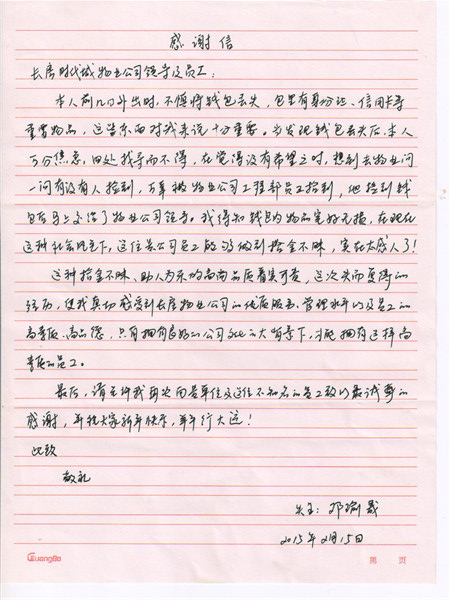 感谢信
长房时代城物业公司领导及员工：
本人前几日外出时，不慎将钱包丢失，包里有身份证、信用卡等
重要物品，这些东西对我来说十分重要。当发现钱包丢失后，本人
万分焦急，四处找寻而不得，在觉得没有希望之时，想到去物业问
一问有没有人捡到，万幸被物业公司工程部员工捡到，他捡到钱
包后马上交给了物业公司领导。我得知钱包内物品完好无损，在现在
这种社会风气下，这位贵公司员工能够做到拾金不昧，实在太感人了！
这种拾金不昧、助人为乐的高尚品质着实可贵，这次失而复得的
经历，使我真切感受到长房物业公司的优质服务、管理水平以及员工的
高素质、高品德，只有拥有良好的公司文化的大背景下，才能拥有这样高
素质的员工。
最后，请允许我再次向贵单位及这位不知名的员工致以最诚挚的
感谢，并祝大家新年快乐，羊年行大运！
此致
敬礼
失主：邓瑜晟
2015年2月15日
GuangBo
第 页